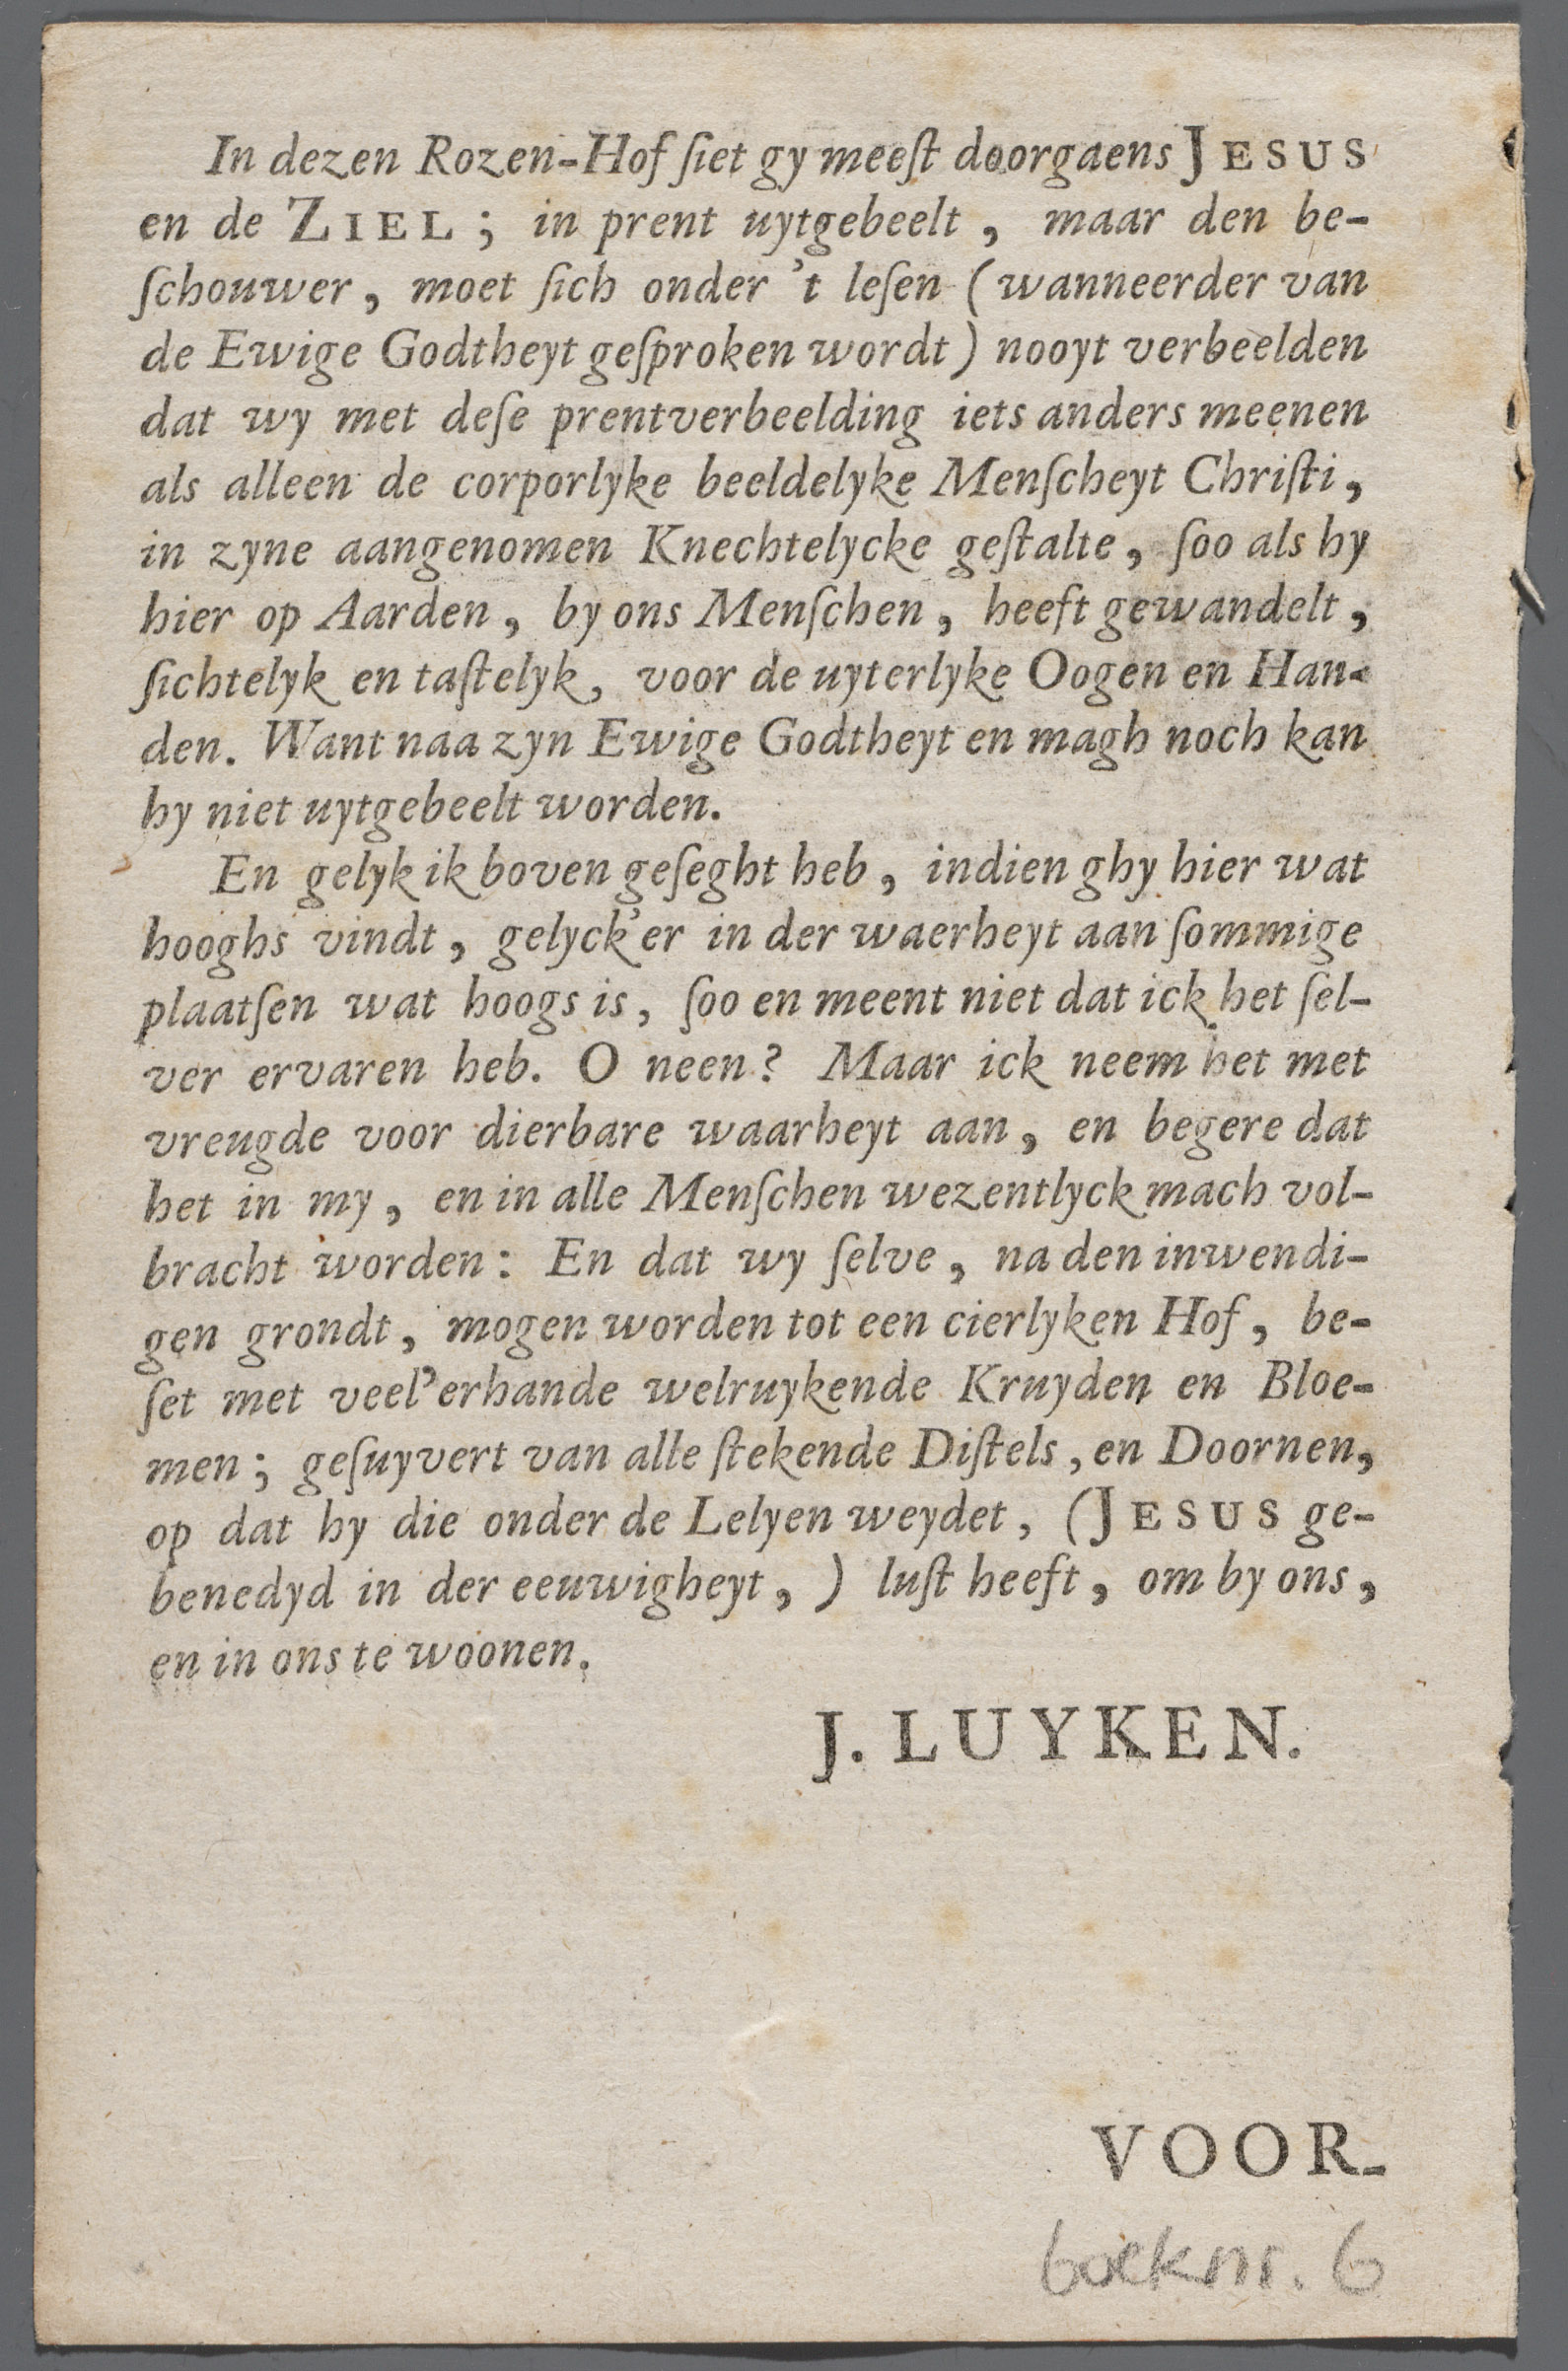 In dezen Rozen-Hof ſiet gy meeſt doorgaens JESUS
en de ZIEL; in prent uytgebeelt, maar den be-
ſchouwer, moet ſich onder 't leſen (wanneerder van
de Ewige Godtheyt geſproken wordt) nooyt verbeelden
dat wy met deſe prentverbeelding iets anders meenen
als alleen de corporlyke beeldelyke Menſcheyt Chriſti,
in zyne aangenomen Knechtelycke geſtalte, ſoo als hy
hier op Aarden, by ons Menſchen, heeft gewandelt,
ſichtelyk en taſtelyk, voor de uyterlyke Oogen en Han-
den. Want naa zyn Ewige Godtheyt en magh noch kan
hy niet uytgebeelt worden.
En gelyk ik boven geſeght heb, indien ghy hier wat
hooghs vindt, gelyck'er in der waerheyt aan ſommige
plaatſen wat hoogs is, ſoo en meent niet dat ick het ſel-
ver ervaren heb. O neen? Maar ick neem het met
vreugde voor dierbare waarheyt aan, en begere dat
het in my, en in alle Menſchen wezentlyck mach vol-
bracht worden: En dat wy ſelve, na den inwendi-
gen grondt, mogen worden tot een cierlyken Hof, be-
ſet met veel'erhande welruykende Kruyden en Bloe-
men; geſuyvert van alle ſtekende Diſtels, en Doornen,
op dat hy die onder de Lelyen weydet, (JESUS ge-
benedyd in der eeuwigheyt,) luſt heeft, om by ons,
en in ons te woonen.
J. LUYKEN.
VOOR-
boeknr. 6